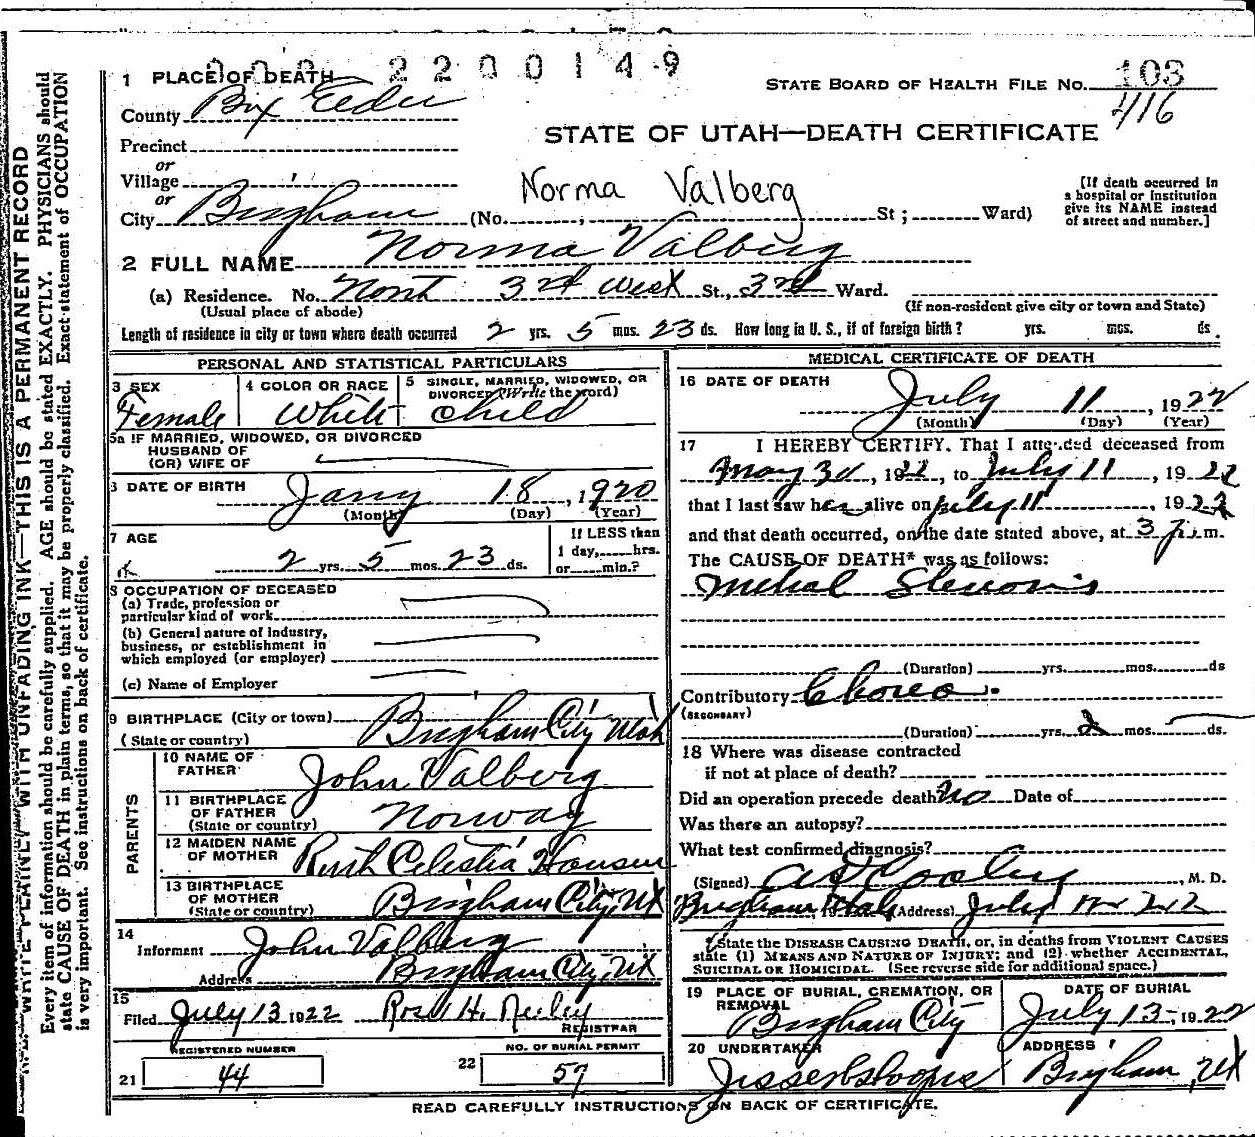 2200149
1 PLACE OF DEATH
County Box Elder
STATE BOARD OF HEALTH FILE No. 103
416
STATE OF UTAH—DEATH CERTIFICATE
Precinct
or
Village
or
City Brigham (No. ; St ; Ward)
Norma Valberg
[If death occurred in
a hospital or institution
give its NAME instead
of street and number.]
2 FULL NAME Norma Valberg
(a) Residence. No. North 3rd West St., 3rd Ward.
(Usual place of abode)
(If non-resident give city or town and State)
Length of residence in city or town where death occurred 2 yrs. 5 mos. 23 ds. How long in U. S., if of foreign birth? yrs. mos. ds
PERSONAL AND STATISTICAL PARTICULARS
3 SEX
Female
4 COLOR OR RACE
White
5 SINGLE, MARRIED, WIDOWED, OR
DIVORCED (Write the word)
Child
5a IF MARRIED, WIDOWED, OR DIVORCED
HUSBAND OF
(OR) WIFE OF
DATE OF BIRTH Jany 18, 1920
(Month) (Day) (Year)
7 AGE
2 yrs. 5 mos. 23 ds.
If LESS than
1 day, hrs.
or min.?
8 OCCUPATION OF DECEASED
(a) Trade, profession or
particular kind of work
(b) General nature of industry,
business, or establishment in
which employed (or employer)
(c) Name of Employer
9 BIRTHPLACE (City or town) Brigham City Utah
(State or country)
PARENTS
10 NAME OF
FATHER John Valberg
11 BIRTHPLACE
OF FATHER Norway
(State or country)
12 MAIDEN NAME
OF MOTHER Ruth Celestia Hansen
13 BIRTHPLACE
OF MOTHER Brigham City, Ut
(State or country)
14
Informent John Valberg
Address Brigham City, Ut
15
Filed July 13 1922 Rose H. Neeley
REGISTRAR
REGISTERED NUMBER
21 44
NO. OF BURIAL PERMIT
22 57
MEDICAL CERTIFICATE OF DEATH
16 DATE OF DEATH
July 11, 1922
(Month) (Day) (Year)
17 I HEREBY CERTIFY. That I attended deceased from
May 3d, 1922, to July 11, 1922
that I last saw her alive on July 11, 1922
and that death occurred, on the date stated above, at 3 p.m.
The CAUSE OF DEATH* was as follows:
Mitral Stenosis
(Duration) yrs. mos. ds
Contributory Chorea.
(SECONDARY)
(Duration) yrs. 2 mos. ds.
18 Where was disease contracted
if not at place of death?
Did an operation precede death no Date of
Was there an autopsy?
What test confirmed diagnosis?
(Signed) , M. D.
Brigham Utah (Address) July
*State the DISEASE CAUSING DEATH, or, in deaths from VIOLENT CAUSES
state (1) MEANS AND NATURE OF INJURY; and (2) whether ACCIDENTAL,
SUICIDAL OR HOMICIDAL. (See reverse side for additional space.)
19 PLACE OF BURIAL, CREMATION, OR
REMOVAL
Brigham City
DATE OF BURIAL
July 13, 1922
20 UNDERTAKER
ADDRESS
Brigham, Ut
READ CAREFULLY INSTRUCTIONS ON BACK OF CERTIFICATE.
WRITE PLAINLY WITH UNFADING INK—THIS IS A PERMANENT RECORD
Every item of information should be carefully supplied. AGE should be stated EXACTLY. PHYSICIANS should
state CAUSE OF DEATH in plain terms, so that it may be properly classified. Exact statement of OCCUPATION
is very important. See instructions on back of certificate.